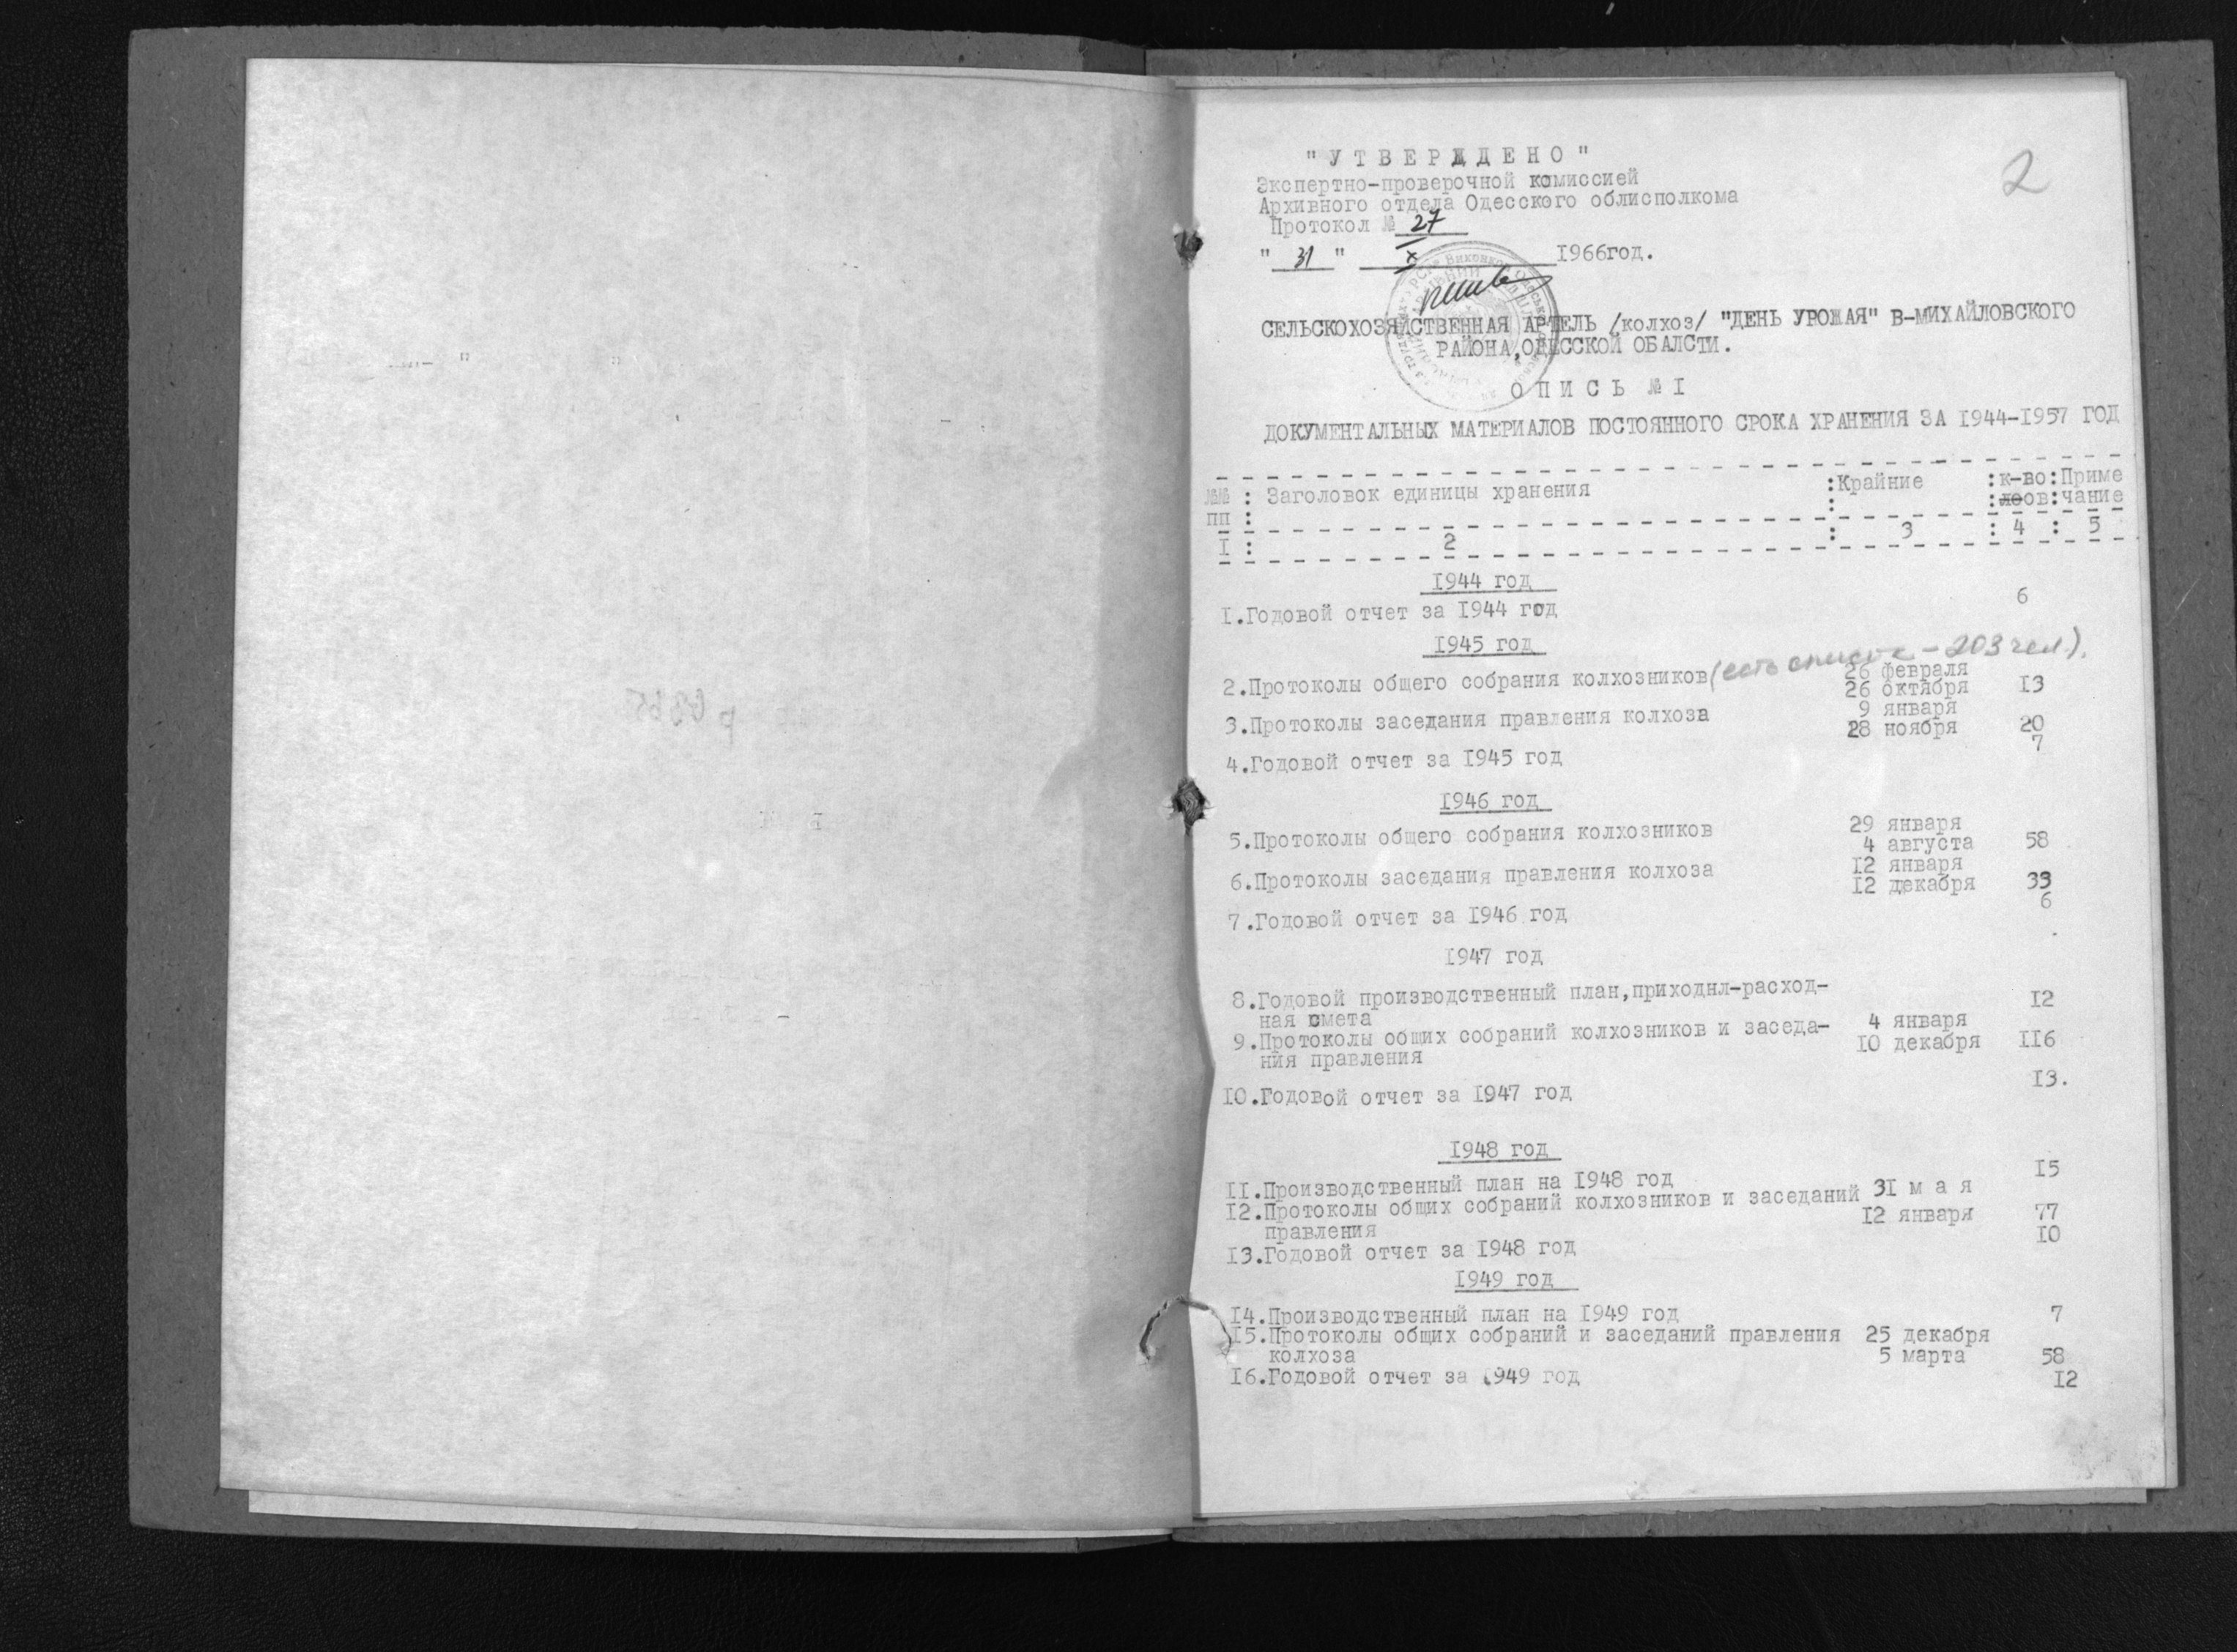 2
"УТВЕРЖДЕНО"
Экспертно-проверочной комиссией
Архивного отдела Одесского облисполкома
Протокол № 27
" 31 " X 1966год.
СЕЛЬСКОХОЗЯЙСТВЕННАЯ АРТЕЛЬ /колхоз/ "ДЕНЬ УРОЖАЯ" В-МИХАЙЛОВСКОГО
РАЙОНА,ОДЕССКОЙ ОБАЛСТИ.
ОПИСЬ №I
ДОКУМЕНТАЛЬНЫХ МАТЕРИАЛОВ ПОСТОЯННОГО СРОКА ХРАНЕНИЯ ЗА I944-I957 ГОД
№№ : Заголовок единицы хранения :Крайние :к-во:Приме
пп : : :леов:чание
I : 2 : 3 : 4 : 5
I944 год
I.Годовой отчет за I944 год 6
I945 год
2.Протоколы общего собрания колхозников (есть список - 203 чел.). 26 февраля
26 октября 13
3.Протоколы заседания правления колхоза 9 января
28 ноября 20
4.Годовой отчет за I945 год 7
I946 год
5.Протоколы общего собрания колхозников 29 января
4 августа 58
6.Протоколы заседания правления колхоза I2 января
I2 декабря 33
7.Годовой отчет за I946 год 6
I947 год
8.Годовой производственный план,приходнл-расход-
ная смета I2
9.Протоколы общих собраний колхозников и заседа- 4 января
ния правления I0 декабря II6
I0.Годовой отчет за I947 год I3.
I948 год
II.Производственный план на I948 год I5
I2.Протоколы общих собраний колхозников и заседаний 3I м а я
правления I2 января 77
I3.Годовой отчет за I948 год I0
I949 год
I4.Производственный план на I949 год 7
I5.Протоколы общих собраний и заседаний правления 25 декабря
колхоза 5 марта 58
I6.Годовой отчет за I949 год I2